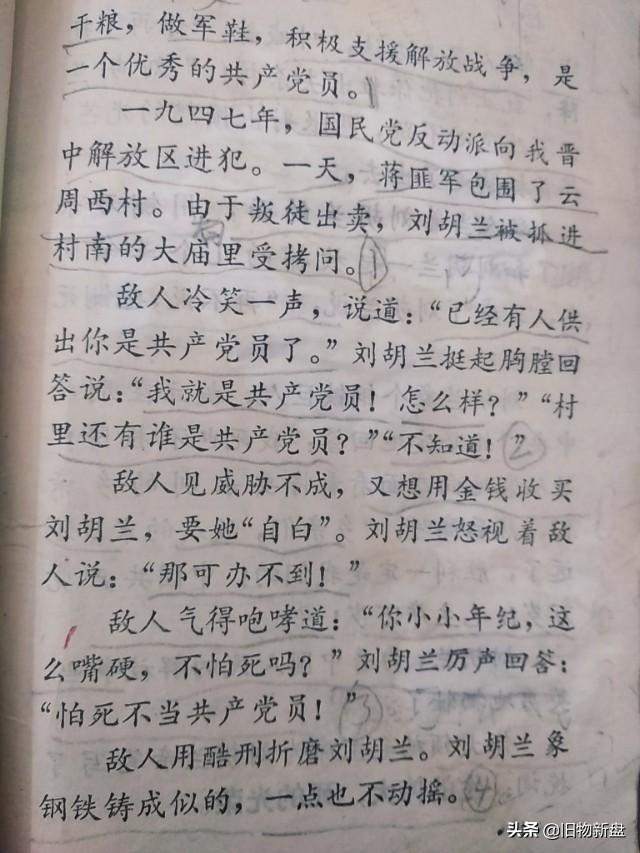 干粮，做军鞋，积极支援解放战争，是
一个优秀的共产党员。
一九四七年，国民党反动派向我晋
中解放区进犯。一天，蒋匪军包围了云
周西村。由于叛徒出卖，刘胡兰被抓进
村南的大庙里受拷问。①
敌人冷笑一声，说道：“已经有人供
出你是共产党员了。”刘胡兰挺起胸膛回
答说：“我就是共产党员！怎么样？”“村
里还有谁是共产党员？”“不知道！”②
敌人见威胁不成，又想用金钱收买
刘胡兰，要她“自白”。刘胡兰怒视着敌
人说：“那可办不到！”
敌人气得咆哮道：“你小小年纪，这
么嘴硬，不怕死吗？”刘胡兰厉声回答：
“怕死不当共产党员！”③
敌人用酷刑折磨刘胡兰。刘胡兰象
钢铁铸成似的，一点也不动摇。④
头条 @旧物新盘